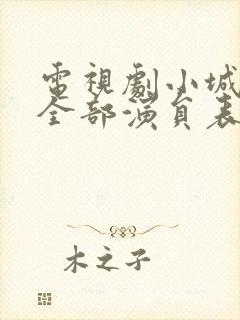 電視劇小城
全部演員表
木之子